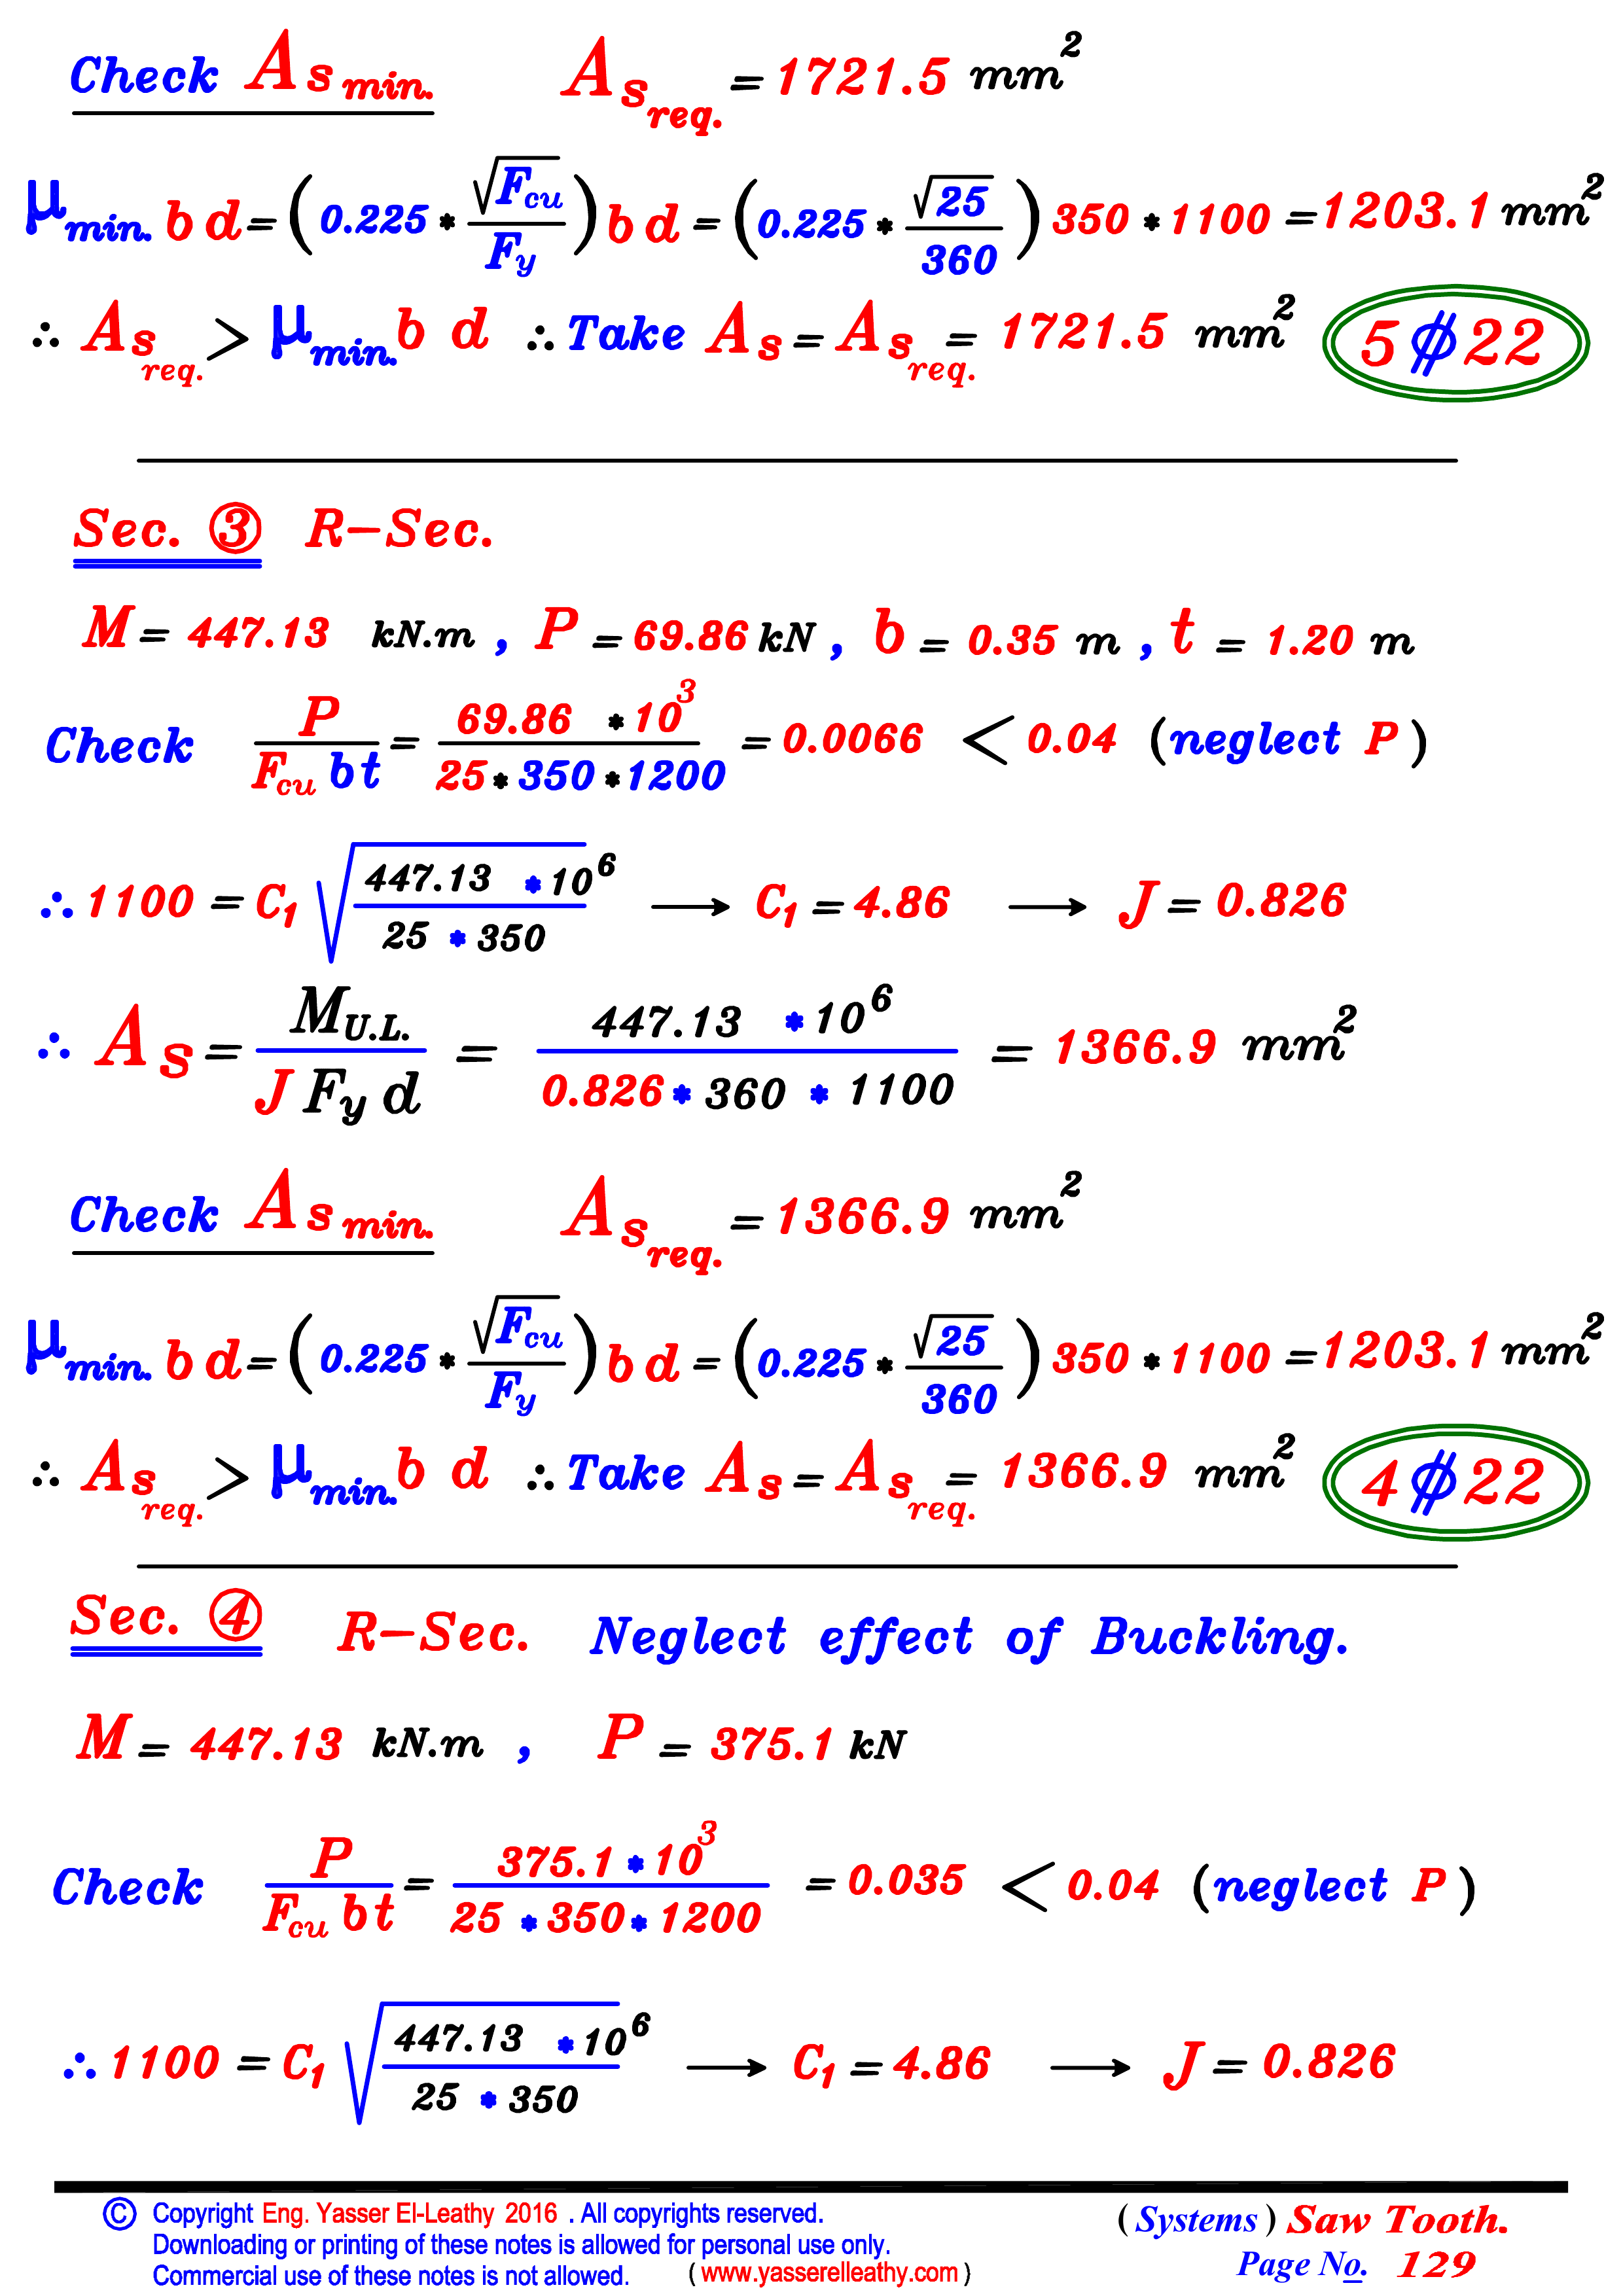 Check As min. As req. = 1721.5 mm²
μ min. b d = ( 0.225 * √Fcu / Fy ) b d = ( 0.225 * √25 / 360 ) 350 * 1100 = 1203.1 mm²
∴ As req. > μ min. b d ∴ Take As = As req. = 1721.5 mm² 5 ⌀ 22
Sec. ③ R-Sec.
M = 447.13 kN.m , P = 69.86 kN , b = 0.35 m , t = 1.20 m
Check P / Fcu bt = 69.86 * 10³ / 25 * 350 * 1200 = 0.0066 < 0.04 (neglect P)
∴ 1100 = C₁ √ 447.13 * 10⁶ / 25 * 350 → C₁ = 4.86 → J = 0.826
∴ As = M U.L. / J Fy d = 447.13 * 10⁶ / 0.826 * 360 * 1100 = 1366.9 mm²
Check As min. As req. = 1366.9 mm²
μ min. b d = ( 0.225 * √Fcu / Fy ) b d = ( 0.225 * √25 / 360 ) 350 * 1100 = 1203.1 mm²
∴ As req. > μ min. b d ∴ Take As = As req. = 1366.9 mm² 4 ⌀ 22
Sec. ④ R-Sec. Neglect effect of Buckling.
M = 447.13 kN.m , P = 375.1 kN
Check P / Fcu bt = 375.1 * 10³ / 25 * 350 * 1200 = 0.035 < 0.04 (neglect P)
∴ 1100 = C₁ √ 447.13 * 10⁶ / 25 * 350 → C₁ = 4.86 → J = 0.826
© Copyright Eng. Yasser El-Leathy 2016 . All copyrights reserved.
Downloading or printing of these notes is allowed for personal use only.
Commercial use of these notes is not allowed. ( www.yasserelleathy.com )
(Systems) Saw Tooth.
Page No. 129